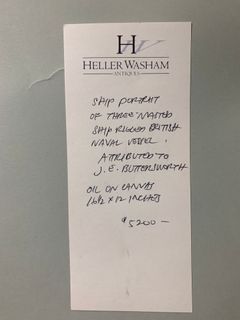 HW
HELLER WASHAM
ANTIQUES
SHIP PORTRAIT
OF THREE-MASTED
SHIP RIGGED BRITISH
NAVAL VESSEL.
ATTRIBUTED TO
J. E. BUTTERSWORTH
OIL ON CANVAS
16 1/2 X 12 INCHES
$5200—